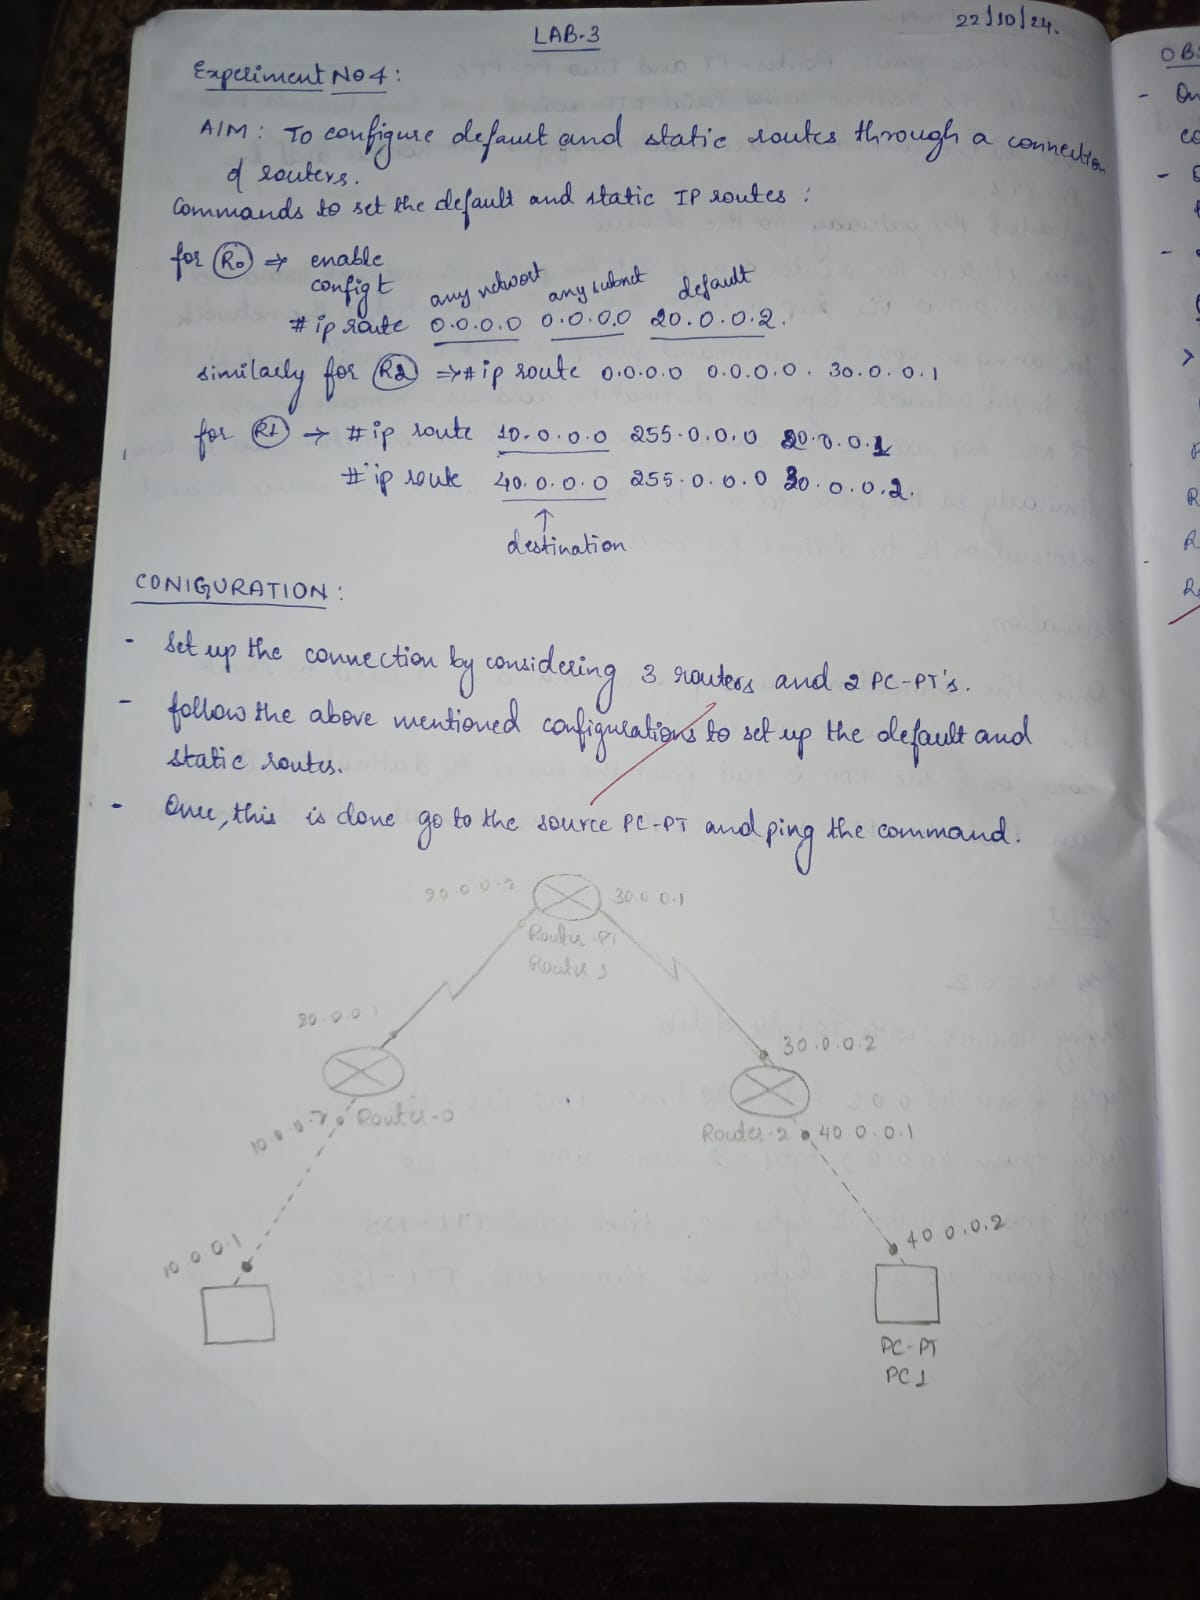 LAB-3
22/10/24.
Experiment No 4:
AIM: To configure default and static routes through a connection
of routers.
Commands to set the default and static IP routes:
for R0 ⇒ enable
config t
any network any subnet default
# ip route 0.0.0.0 0.0.0.0 20.0.0.2.
similarly for R2 ⇒ # ip route 0.0.0.0 0.0.0.0. 30.0.0.1
for R1 → # ip route 10.0.0.0 255.0.0.0 20.0.0.1
# ip route 40.0.0.0 255.0.0.0 30.0.0.2.
↑
destination
CONIGURATION:
- Set up the connection by considering 3 routers and 2 PC-PT's.
- follow the above mentioned configurations to set up the default and
static routes.
- Once, this is done go to the source PC-PT and ping the command.
20.0.0.2
30.0.0.1
Router-PT
Router 1
20.0.0.1
30.0.0.2
10.0.0.2
Router-0
Router-2
40.0.0.1
10.0.0.1
40.0.0.2
PC-PT
PC1